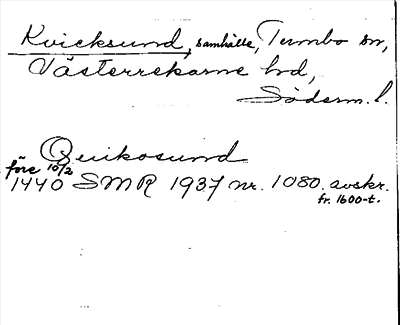 Kvicksund, samhälle, Tumbo sn,
Västerrekarne hd,
Söderm. l.
Quikosund
före 10/2
1440 SMR 1937 nr. 1080. avskr.
fr. 1600-t.